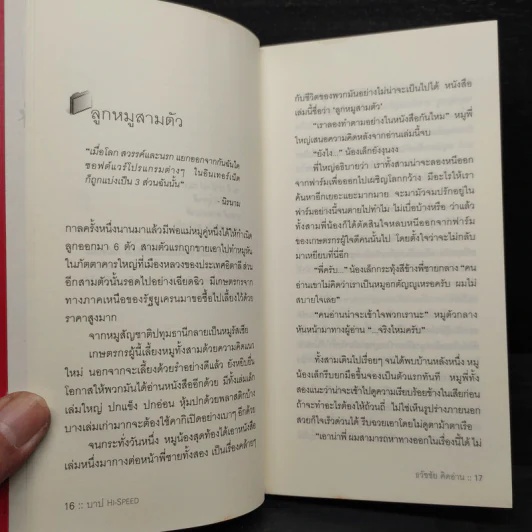 ลูกหมูสามตัว
"เมื่อโลก สวรรค์และนรก แยกออกจากกันฉันใด
ซอฟต์แวร์โปรแกรมต่างๆ ในอินเทอร์เน็ต
ก็ถูกแบ่งเป็น 3 ส่วนฉันนั้น"
- นิรนาม
กาลครั้งหนึ่งนานมาแล้วมีพ่อแม่หมูคู่หนึ่งได้ให้กำเนิด
ลูกออกมา 6 ตัว สามตัวแรกถูกขายเอาไปทำหมูหัน
ในภัตตาคารใหญ่ที่เมืองหลวงของประเทศอิตาลี ส่วน
อีกสามตัวนั้นรอดไปอย่างเฉียดฉิว มีเกษตรกรจาก
ทางภาคเหนือของรัฐยูเครนมาขอซื้อไปเลี้ยงไว้ด้วย
ราคาสูงมาก
จากหมูสัญชาติปทุมธานีกลายเป็นหมูรัสเซีย
เกษตรกรผู้นี้เลี้ยงหมูทั้งสามด้วยความคิดแนว
ใหม่ นอกจากจะเลี้ยงด้วยรำอย่างดีแล้ว ยังหยิบยื่น
โอกาสให้พวกมันได้อ่านหนังสืออีกด้วย มีทั้งเล่มเล็ก
เล่มใหญ่ ปกแข็ง ปกอ่อน หุ้มปกด้วยพลาสติกบ้าง
บางเล่มเก่ามากจะต้องใช้คากิเปิดอย่างเบาๆ อีกด้วย
จนกระทั่งวันหนึ่ง หมูน้องสุดท้องได้เอาหนังสือ
เล่มหนึ่งมากางต่อหน้าพี่ชายทั้งสอง เป็นเรื่องคล้ายๆ
16 :: บาป HI-SPEED
กับชีวิตของพวกมันอย่างไม่น่าจะเป็นไปได้ หนังสือ
เล่มนี้ชื่อว่า 'ลูกหมูสามตัว'
"เราลองทำตามอย่างในหนังสือกันไหม" หมูพี่
ใหญ่เสนอความคิดหลังจากอ่านเล่มนี้จบ
"ยังไง..." น้องเล็กยังงุนงง
พี่ใหญ่อธิบายว่า เราทั้งสามน่าจะลองหนีออก
จากฟาร์มเพื่อออกไปเผชิญโลกกว้าง มีอะไรให้เรา
ค้นหาอีกเยอะแยะมากมาย จะมามัวจมปรักอยู่ใน
ฟาร์มอย่างนี้จนตายไปทำไม ไม่เบื่อบ้างหรือ ว่าแล้ว
ทั้งสามพี่น้องก็ได้ตัดสินใจหลบหนีออกจากฟาร์ม
ของเกษตรกรผู้ใจดีคนนั้นไป โดยตั้งใจว่าจะไม่กลับ
มาเหยียบที่นี่อีก
"พี่ครับ..." น้องเล็กกระทุ้งสีข้างพี่ชายกลาง "คน
อ่านเขาไม่คิดว่าเราเป็นหมูอกตัญญูเหรอครับ ผมไม่
สบายใจเลย"
"คนอ่านน่าจะเข้าใจพวกเรานะ" หมูตัวกลาง
หันหน้ามาทางผู้อ่าน "...จริงไหมครับ"
ทั้งสามเดินไปเรื่อยๆ จนได้พบบ้านหลังหนึ่ง หมู
น้องเล็กรีบยกมือขึ้นจองเป็นตัวแรกทันที หมูพี่ทั้ง
สองแนะว่าน่าจะเข้าไปดูความเรียบร้อยข้างในเสียก่อน
ถ้าจะทำอะไรต้องให้ถ้วนถี่ ไม่ใช่เห็นรูปร่างภายนอก
สวยก็ใจเร็วด่วนได้ รีบฉวยเอาโดยไม่ดูตาม้าตาเรือ
"เอาน่าพี่ ผมสามารถหาทางออกในเรื่องนี้ได้ ไม่
ธวัชชัย คิดอ่าน :: 17